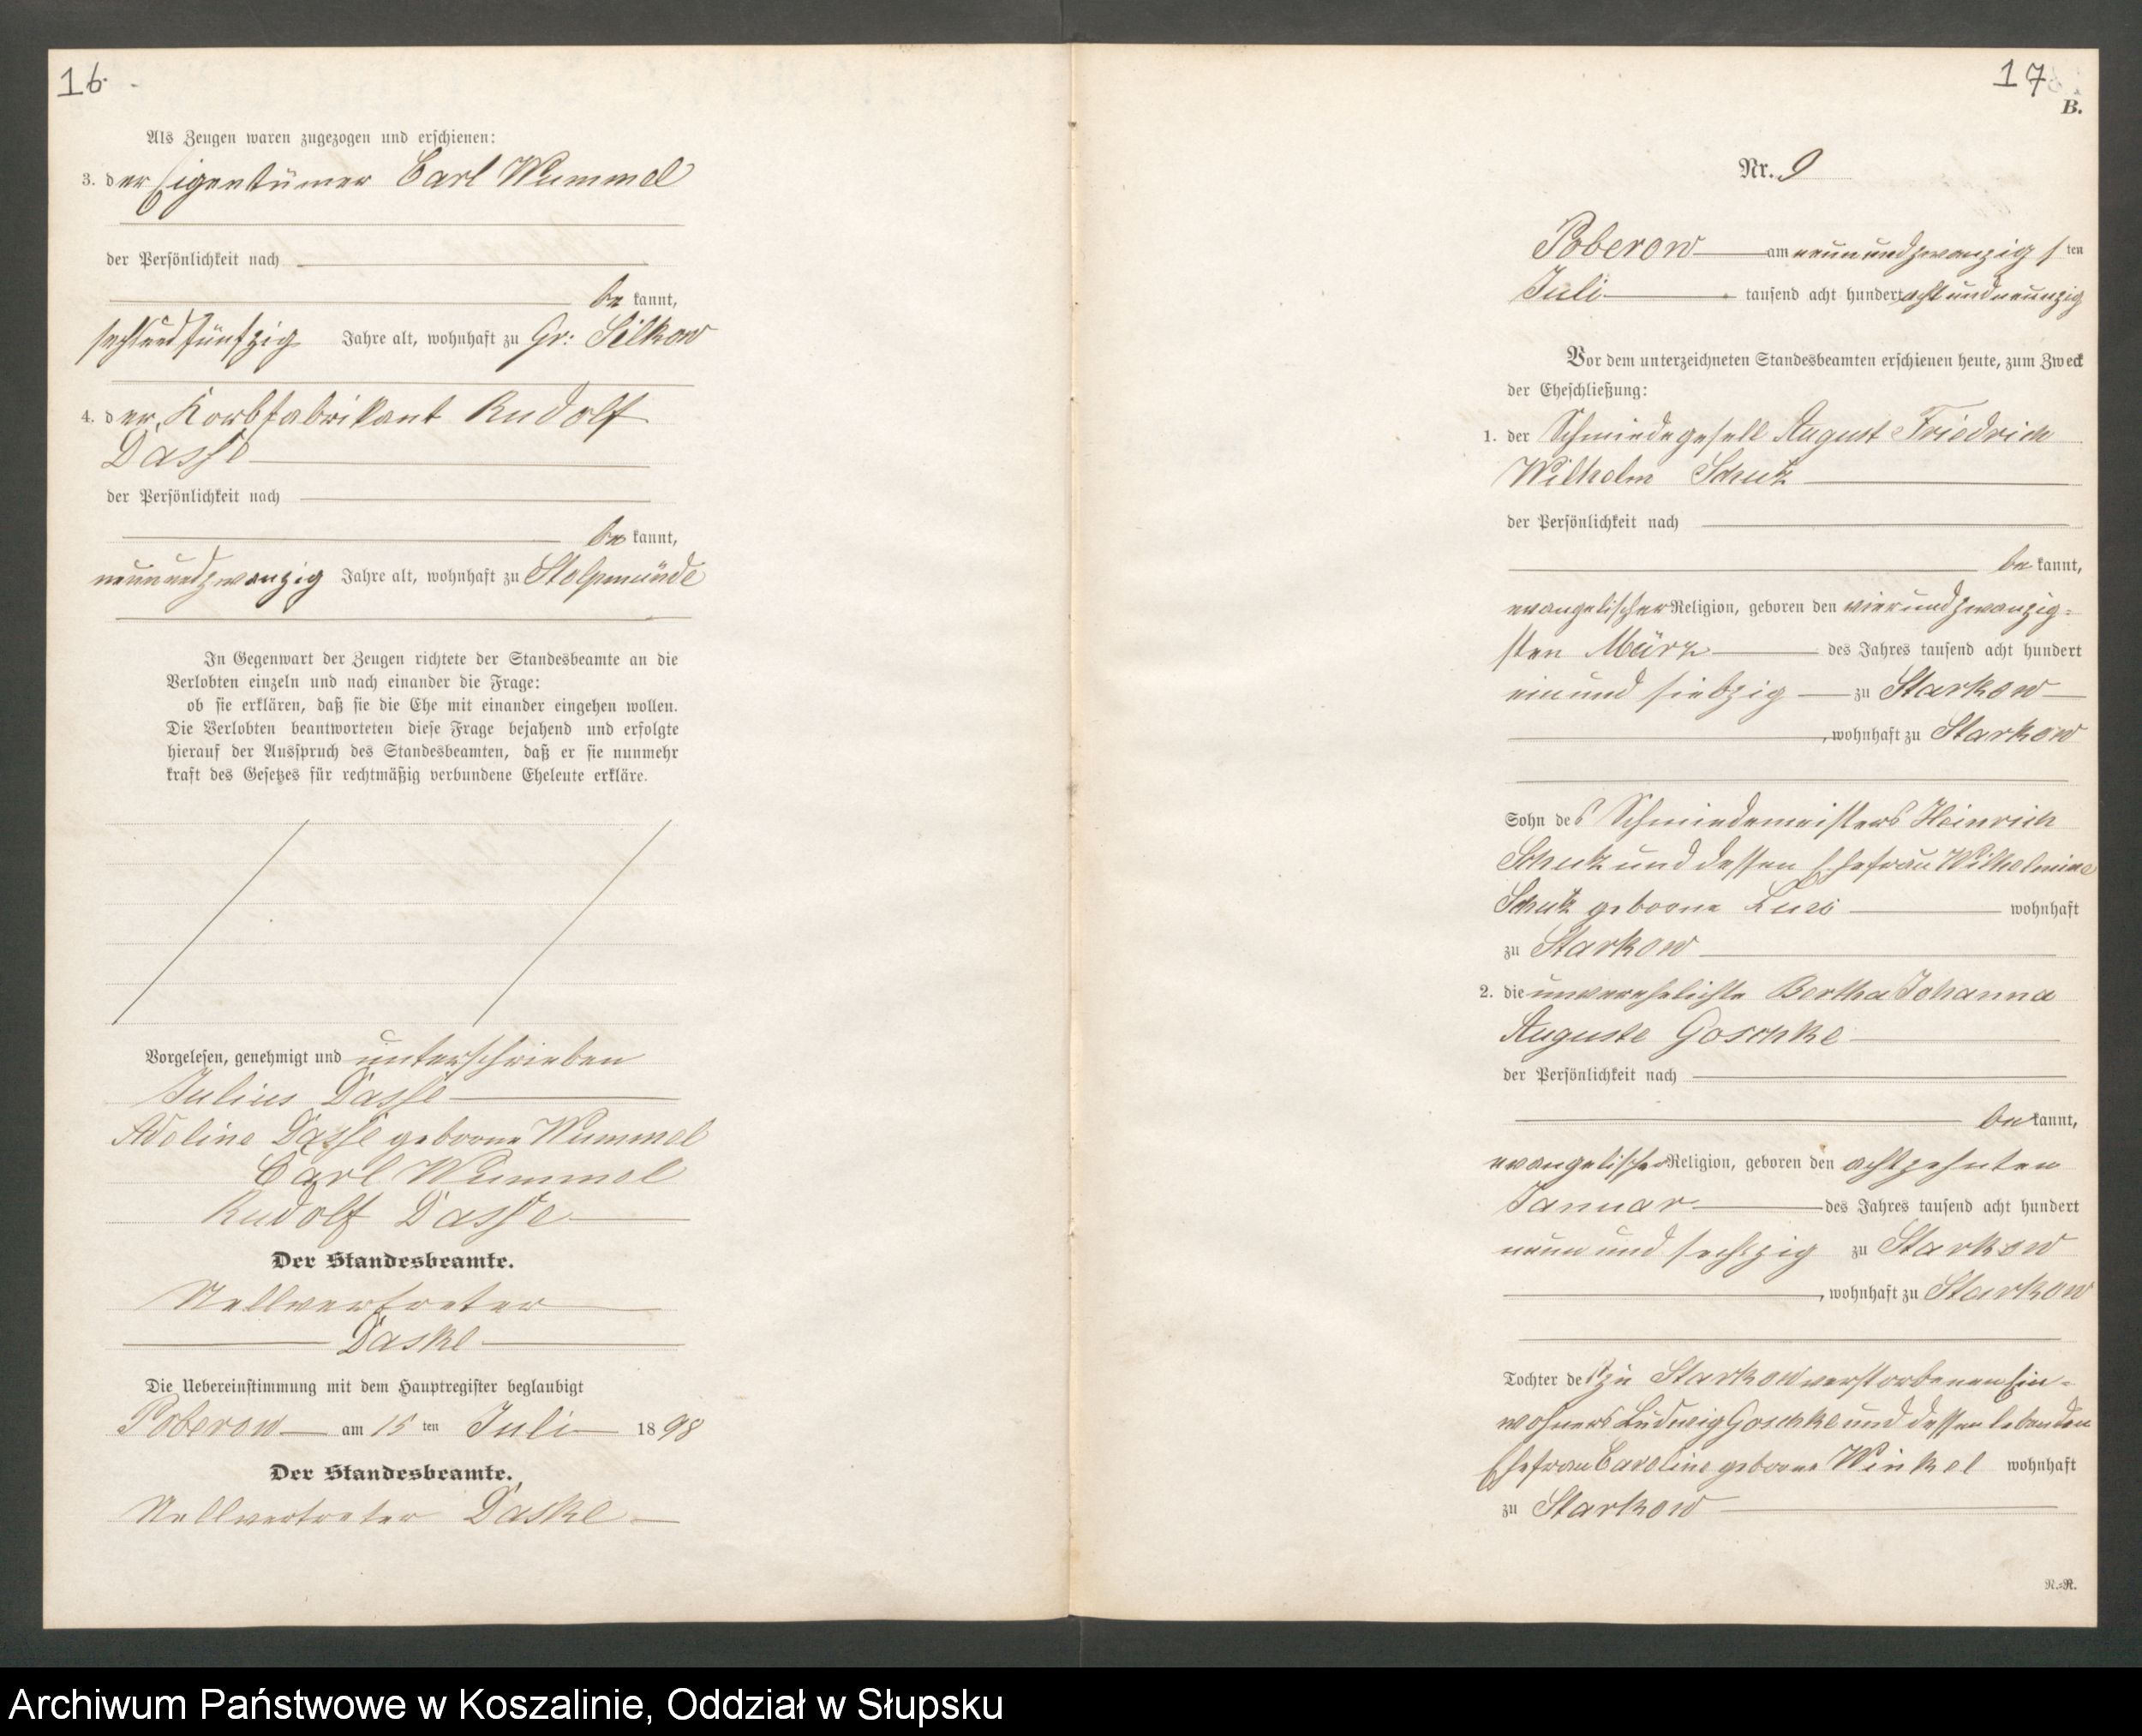 16.
Als Zeugen waren zugezogen und erschienen:
3. der Eigentümer Carl Wummel
der Persönlichkeit nach
be kannt,
sechsundfünfzig Jahre alt, wohnhaft zu Gr: Silkow
4. der Korbfabrikant Rudolf
Dasse
der Persönlichkeit nach
be kannt,
neunundzwanzig Jahre alt, wohnhaft zu Stolpmünde
In Gegenwart der Zeugen richtete der Standesbeamte an die
Verlobten einzeln und nach einander die Frage:
ob sie erklären, daß sie die Ehe mit einander eingehen wollen.
Die Verlobten beantworteten diese Frage bejahend und erfolgte
hierauf der Ausspruch des Standesbeamten, daß er sie nunmehr
kraft des Gesetzes für rechtmäßig verbundene Eheleute erkläre.
Vorgelesen, genehmigt und unterschrieben
Julius Dasse
Adeline Dasse geborne Wummel
Carl Wummel
Rudolf Dasse
Der Standesbeamte.
Stellvertreter
Daske
Die Uebereinstimmung mit dem Hauptregister beglaubigt
Poberow am 15 ten Juli 1898
Der Standesbeamte.
Stellvertreter Daske
17
B.
Nr. 9
Poberow am neunundzwanzig s ten
Juli tausend acht hundert achtundneunzig
Vor dem unterzeichneten Standesbeamten erschienen heute, zum Zweck
der Eheschließung:
1. der Schmiedegesell August Friedrich
Wilhelm Schutz
der Persönlichkeit nach
be kannt,
evangelischer Religion, geboren den vierundzwanzig-
sten März des Jahres tausend acht hundert
einund siebzig zu Starkow
, wohnhaft zu Starkow
Sohn des Schmiedemeisters Heinrich
Schutz und dessen Ehefrau Wilhelmine
Schutz geborne wohnhaft
zu Starkow
2. die unverehelichte Bertha Johanna
Auguste Goschke
der Persönlichkeit nach
be kannt,
evangelischer Religion, geboren den achtzehnten
Januar des Jahres tausend acht hundert
neun und sechszig zu Starkow
, wohnhaft zu Starkow
Tochter des zu Starkow verstorbenen Ein-
wohners Ludwig Goschke und dessen lebenden
Ehefrau Caroline geborne Winkel wohnhaft
zu Starkow
R.-R.
Archiwum Państwowe w Koszalinie, Oddział w Słupsku